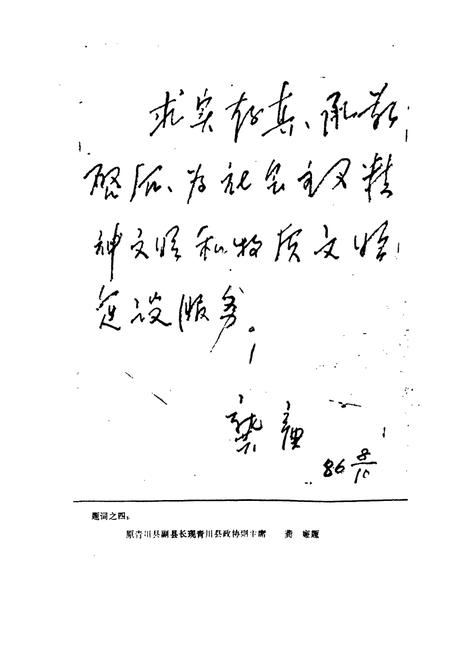 求实存真、承前
启后、为社会主义精
神文明和物质文明
建设服务。
龚
86 8/10
题词之四:
原青川县副县长现青川县政协副主席 龚 题